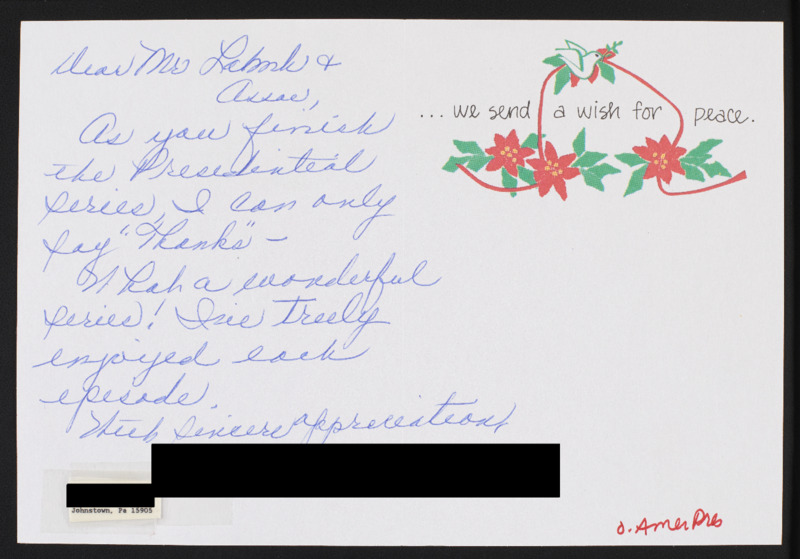 Dear Mr Labmk &
Assoc,
As you finish
the Presidential
series, I can only
say "Thanks" -
What a wonderful
series! I've truly
enjoyed each
episode.
With sincere appreciation,
... we send a wish for peace.
Johnstown, Pa 15905
o. Amer Pres